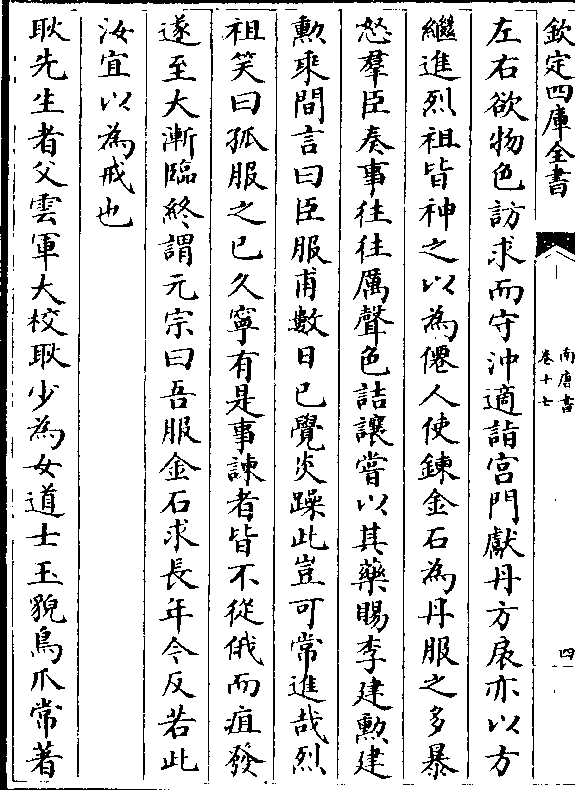 欽定四庫全書
南唐書
卷十七
四
左右欲物色訪求而守沖適詣宫門獻丹方扆亦以方
繼進烈祖皆神之以為僊人使鍊金石為丹服之多暴
怒羣臣奏事往往厲聲色詰讓嘗以其藥賜李建勲建
勲乘間言曰臣服甫數日已覺炎躁此豈可常進哉烈
祖笑曰孤服之已久寧有是事諫者皆不從俄而疽發
遂至大漸臨終謂元宗曰吾服金石求長年今反若此
汝宜以為戒也
耿先生者父雲軍大校耿少為女道士玉貌鳥爪常著